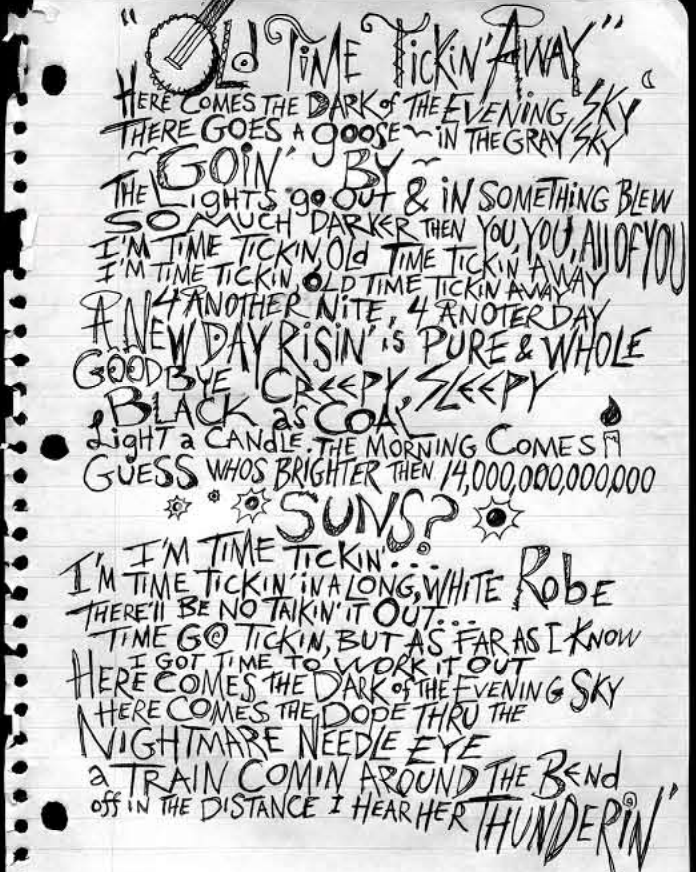 "OLd TiME TickiN' AWAY"
HERE COMES THE DARK of THE EVENING SKY
THERE GOES A goose ~ IN THE GRAY SKY
GOIN' BY
THE LigHTS go OUT & iN SOMETHiNG BLEW
SO MUCH DARKER THEN YOU, YOU, All OF YOU
I'M TIME TICKIN, OLd TIME TICKIN, AWAY
I'M TIME TICKIN, OLD TIME TICKIN AWAY
4 ANOTHER NiTE, 4 ANOTER DAY
A NEW DAY RiSiN' iS PURE & WHOLE
GOODBYE CREEPY, SLEEPY
BLACK as COAL
LigHT a CANDLE. THE MORNiNG COMES
GUESS WHOS BRIGHTER THEN 14,000,000,000,000
SUNS?
I'M TIME TICKIN'...
I'M TIME TICKIN' IN A LONG, WHITE RobE
THERE'll BE NO TAlKIN' iT OUT...
TIME GO TICKIN, BUT AS FAR AS I KNOW
I GOT TIME TO WORK IT OUT
HERE COMES THE DARK of THE EVENING SKY
HERE COMES THE DOPE THRU THE
NIGHTMARE NEEDLE EYE
a TRAIN COMIN AROUND THE BENd
off iN THE DiSTANCE I HEAR HER THUNDERiN"